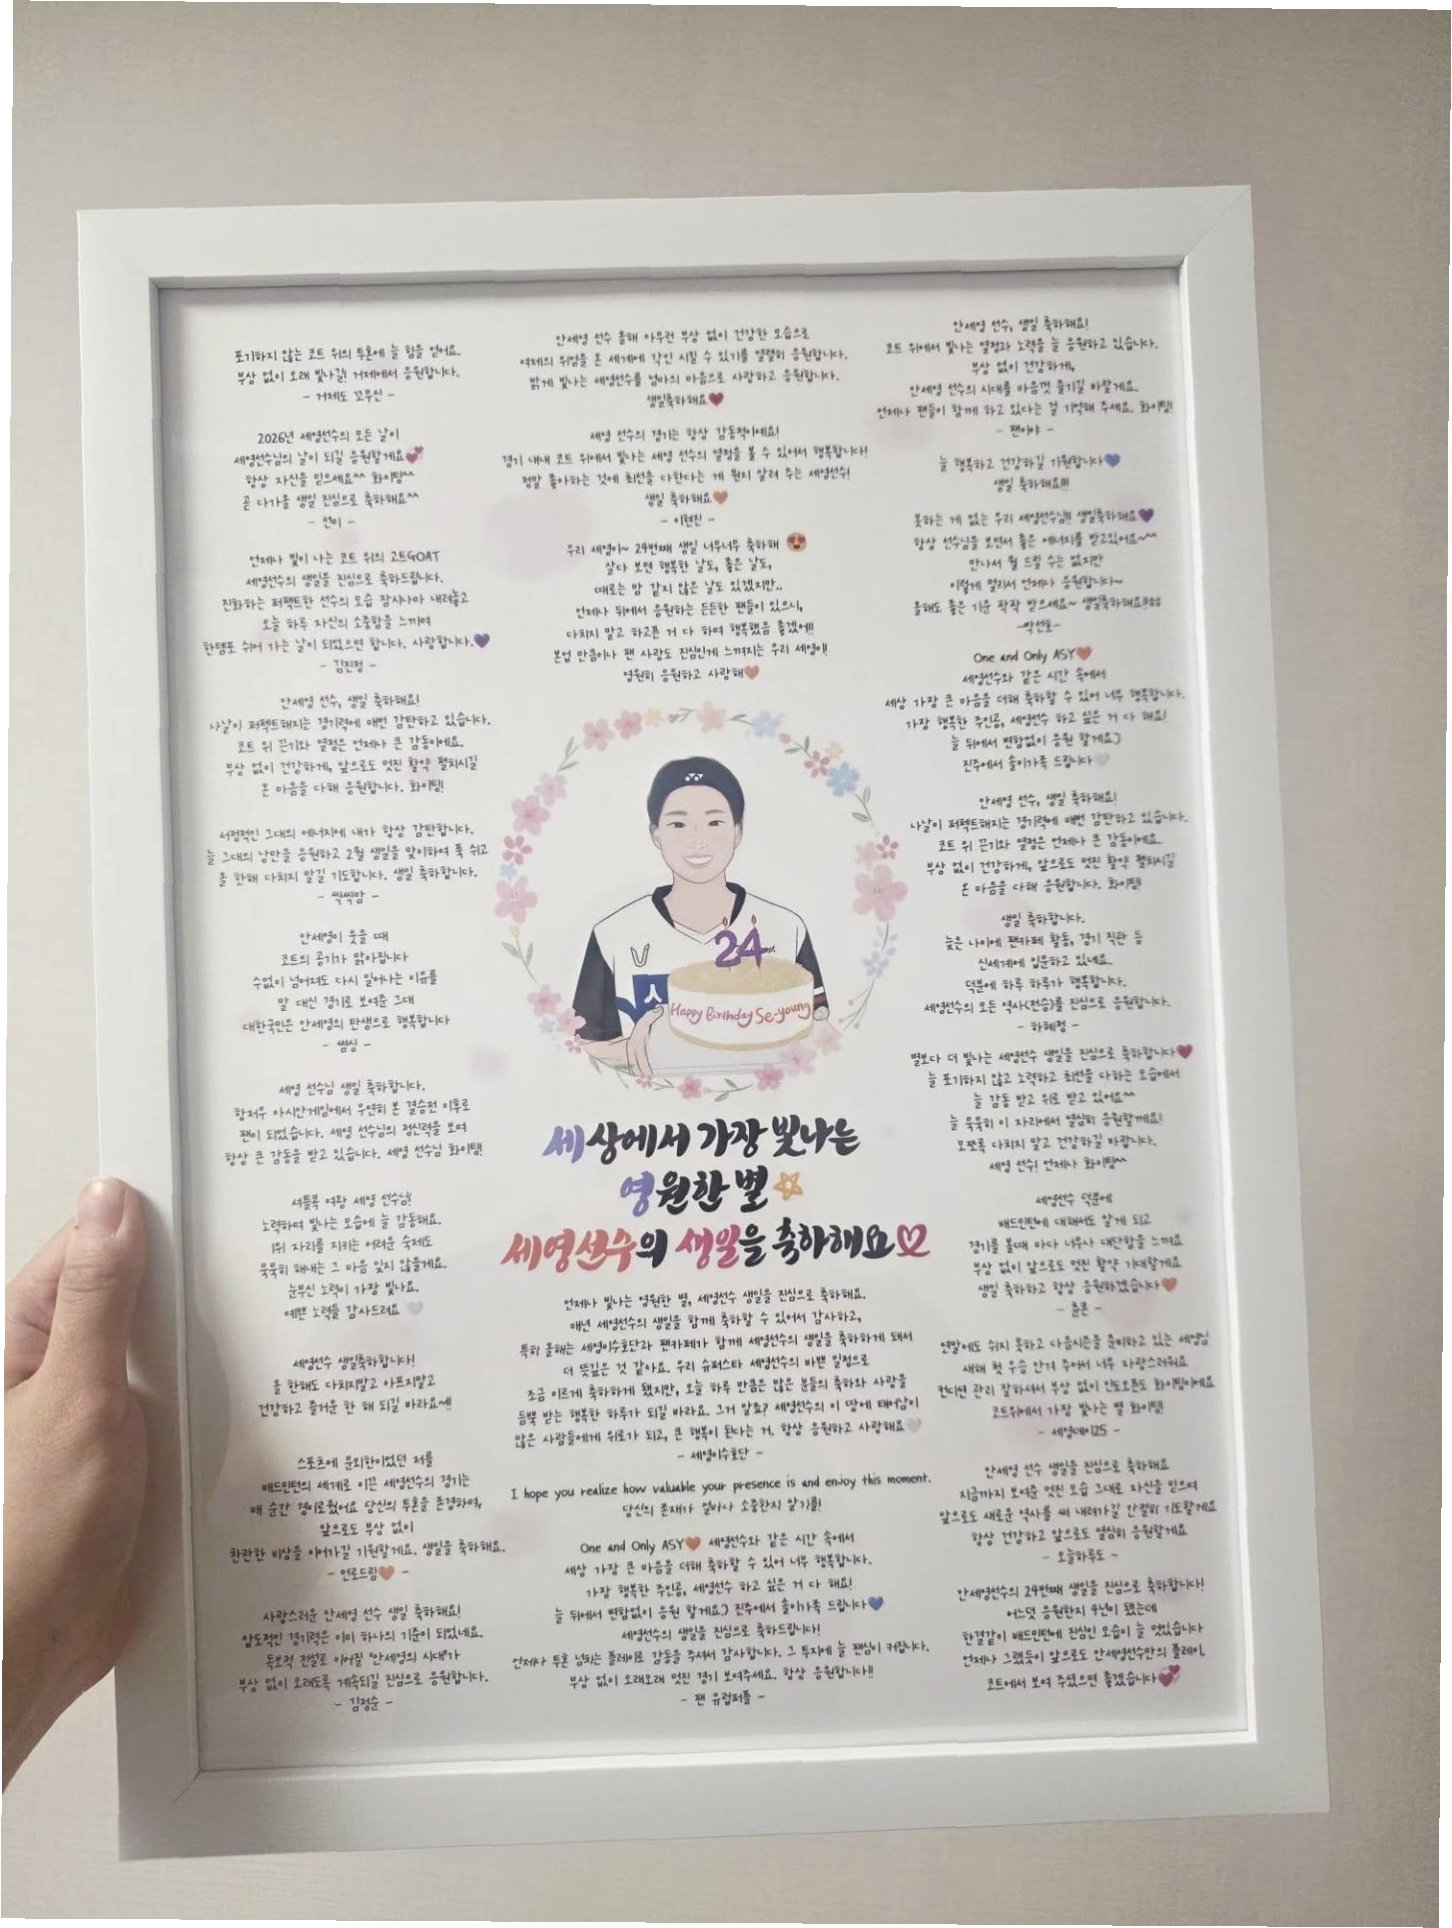 포기하지 않는 코트 위의 투혼에 늘 힘을 얻어요.
부상 없이 오래 빛나길! 거제에서 응원합니다.
- 거제도 꼬무신 -
2026년 세영선수의 모든 날이
세영선수님의 날이 되길 응원할게요💕
항상 자신을 믿으세요^^ 화이팅^^
곧 다가올 생일 진심으로 축하해요^^
- 선이 -
언제나 빛이 나는 코트 위의 고트GOAT
세영선수의 생일을 진심으로 축하드립니다.
진화하는 퍼펙트한 선수의 모습 잠시나마 내려놓고
오늘 하루 자신의 소중함을 느끼며
한템포 쉬어 가는 날이 되었으면 합니다. 사랑합니다.💜
- 김진정 -
안세영 선수, 생일 축하해요!
나날이 퍼펙트해지는 경기력에 매번 감탄하고 있습니다.
코트 위 끈기와 열정은 언제나 큰 감동이에요.
부상 없이 건강하게, 앞으로도 멋진 활약 펼치시길
온 마음을 다해 응원합니다. 화이팅!
서정적인 그대의 에너지에 내가 항상 감탄합니다.
늘 그대의 낭만을 응원하고 2월 생일을 맞이하여 푹 쉬고
올 한해 다치지 말길 기도합니다. 생일 축하합니다.
- 씩씩맘 -
안세영이 웃을 때
코트의 공기가 맑아집니다
수없이 넘어져도 다시 일어나는 이유를
말 대신 경기로 보여준 그대
대한국민은 안세영의 탄생으로 행복합니다
- 썸싱 -
세영 선수님 생일 축하합니다.
항저우 아시안게임에서 우연히 본 결승전 이후로
팬이 되었습니다. 세영 선수님의 정신력을 보며
항상 큰 감동을 받고 있습니다. 세영 선수님 화이팅!
셔틀콕 여왕 세영 선수님!
노력하며 빛나는 모습에 늘 감동해요.
1위 자리를 지키는 어려운 숙제도
묵묵히 해내는 그 마음 잊지 않을게요.
눈부신 노력이 가장 빛나요.
예쁜 노력들 감사드려요 🤍
세영선수 생일축하합니다!
올 한해도 다치지말고 아프지말고
건강하고 즐거운 한 해 되길 바라요~!!
스포츠에 문외한이었던 저를
배드민턴의 세계로 이끈 세영선수의 경기는
매 순간 경이로웠어요 당신의 투혼을 존경하며,
앞으로도 부상 없이
찬란한 비상을 이어가길 기원할게요. 생일을 축하해요.
- 언로드림🧡 -
사랑스러운 안세영 선수 생일 축하해요!
압도적인 경기력은 이미 하나의 기준이 되었네요.
독보적 전설로 이어질 '안세영의 시대'가
부상 없이 오래도록 계속되길 진심으로 응원합니다.
- 김정순 -
안세영 선수 올해 아무런 부상 없이 건강한 모습으로
여제의 위엄을 온 세계에 각인 시킬 수 있기를 열렬히 응원합니다.
밝게 빛나는 세영선수를 엄마의 마음으로 사랑하고 응원합니다.
생일축하해요💗
세영 선수의 경기는 항상 감동적이에요!
경기 내내 코트 위에서 빛나는 세영 선수의 열정을 볼 수 있어서 행복합니다!
정말 좋아하는 것에 최선을 다한다는 게 뭔지 알려 주는 세영선수!
생일 축하해요🧡
- 이현진 -
우리 세영이~ 24번째 생일 너무너무 축하해 😍
살다 보면 행복한 날도, 좋은 날도,
때로는 맘 같지 않은 날도 있겠지만..
언제나 뒤에서 응원하는 든든한 팬들이 있으니,
다치지 말고 하고픈 거 다 하며 행복했음 좋겠어!!
본업 만큼이나 팬 사랑도 진심인게 느껴지는 우리 세영이!
영원히 응원하고 사랑해🧡
24
Happy Birthday Se-young
세상에서 가장 빛나는
영원한 별
세영선수의 생일을 축하해요
언제나 빛나는 영원한 별, 세영선수 생일을 진심으로 축하해요.
매년 세영선수의 생일을 함께 축하할 수 있어서 감사하고,
특히 올해는 세영이수호단과 팬카페가 함께 세영선수의 생일을 축하하게 돼서
더 뜻깊은 것 같아요. 우리 슈퍼스타 세영선수의 바쁜 일정으로
조금 이르게 축하하게 됐지만, 오늘 하루 만큼은 많은 분들의 축하와 사랑을
듬뿍 받는 행복한 하루가 되길 바라요. 그거 알죠? 세영선수의 이 땅에 태어남이
많은 사람들에게 위로가 되고, 큰 행복이 된다는 거. 항상 응원하고 사랑해요🤍
- 세영이수호단 -
I hope you realize how valuable your presence is and enjoy this moment.
당신의 존재가 얼마나 소중한지 알기를!
One and Only ASY🧡 세영선수와 같은 시간 속에서
세상 가장 큰 마음을 더해 축하할 수 있어 너무 행복합니다.
가장 행복한 주인공, 세영선수 하고 싶은 거 다 해요!
늘 뒤에서 변함없이 응원 할게요:) 진주에서 솔이가족 드립니다💙
세영선수의 생일을 진심으로 축하드립니다!
언제나 투혼 넘치는 플레이로 감동을 주셔서 감사합니다. 그 투지에 늘 팬심이 커집니다.
부상 없이 오래오래 멋진 경기 보여주세요. 항상 응원합니다!!
- 팬 유럽퍼플 -
안세영 선수, 생일 축하해요!
코트 위에서 빛나는 열정과 노력을 늘 응원하고 있습니다.
부상 없이 건강하게,
안세영 선수의 시대를 마음껏 즐기길 바랄게요.
언제나 팬들이 함께 하고 있다는 걸 기억해 주세요. 화이팅!
- 팬이야 -
늘 행복하고 건강하길 기원합니다💙
생일 축하해요!!!
못하는 게 없는 우리 세영선수님!! 생일축하해요💜
항상 선수님을 보면서 좋은 에너지를 받고있어요~^^
만나서 뭘 드릴 수는 없지만
이렇게 멀리서 언제나 응원합니다~
올해도 좋은 기운 팍팍 받으세요~ 생일축하해요!!
-박선호-
One and Only ASY🧡
세영선수와 같은 시간 속에서
세상 가장 큰 마음을 더해 축하할 수 있어 너무 행복합니다.
가장 행복한 주인공, 세영선수 하고 싶은 거 다 해요!
늘 뒤에서 변함없이 응원 할게요:)
진주에서 솔이가족 드립니다🤍
안세영 선수, 생일 축하해요!
나날이 퍼펙트해지는 경기력에 매번 감탄하고 있습니다.
코트 위 끈기와 열정은 언제나 큰 감동이에요.
부상 없이 건강하게, 앞으로도 멋진 활약 펼치시길
온 마음을 다해 응원합니다. 화이팅!
생일 축하합니다.
늦은 나이에 팬카페 활동, 경기 직관 등
신세계에 입문하고 있네요.
덕분에 하루 하루가 행복합니다.
세영선수의 모든 역사(전승)를 진심으로 응원합니다.
- 하혜정 -
별보다 더 빛나는 세영선수 생일을 진심으로 축하합니다💗
늘 포기하지 않고 노력하고 최선을 다하는 모습에서
늘 감동 받고 위로 받고 있어요^^
늘 묵묵히 이 자리에서 열심히 응원할께요!
모쪼록 다치지 말고 건강하길 바랍니다.
세영 선수! 언제나 화이팅^^
세영선수 덕분에
배드민턴에 대해서도 알게 되고
경기를 볼때 마다 너무나 대단함을 느껴요
부상 없이 앞으로도 멋진 활약 기대할게요
생일 축하하고 항상 응원하겠습니다🧡
- 쥰쥰 -
연말에도 쉬지 못하고 다음시즌을 준비하고 있는 세영님
새해 첫 우승 안겨 주어서 너무 자랑스러워요
컨디션 관리 잘하셔서 부상 없이 인도오픈도 화이팅이에요
코트위에서 가장 빛나는 별 화이팅!
- 세영데이25 -
안세영 선수 생일을 진심으로 축하해요
지금까지 보여준 멋진 모습 그대로 자신을 믿으며
앞으로도 새로운 역사를 써 내려가길 간절히 기도할게요
항상 건강하고 앞으로도 열심히 응원할게요
- 오늘하루도 -
안세영선수의 24번째 생일을 진심으로 축하합니다!
어느덧 응원한지 9년이 됐는데
한결같이 배드민턴에 진심인 모습이 늘 멋있습니다
언제나 그랬듯이 앞으로도 안세영선수만의 플레이,
코트에서 보여 주셨으면 좋겠습니다💕